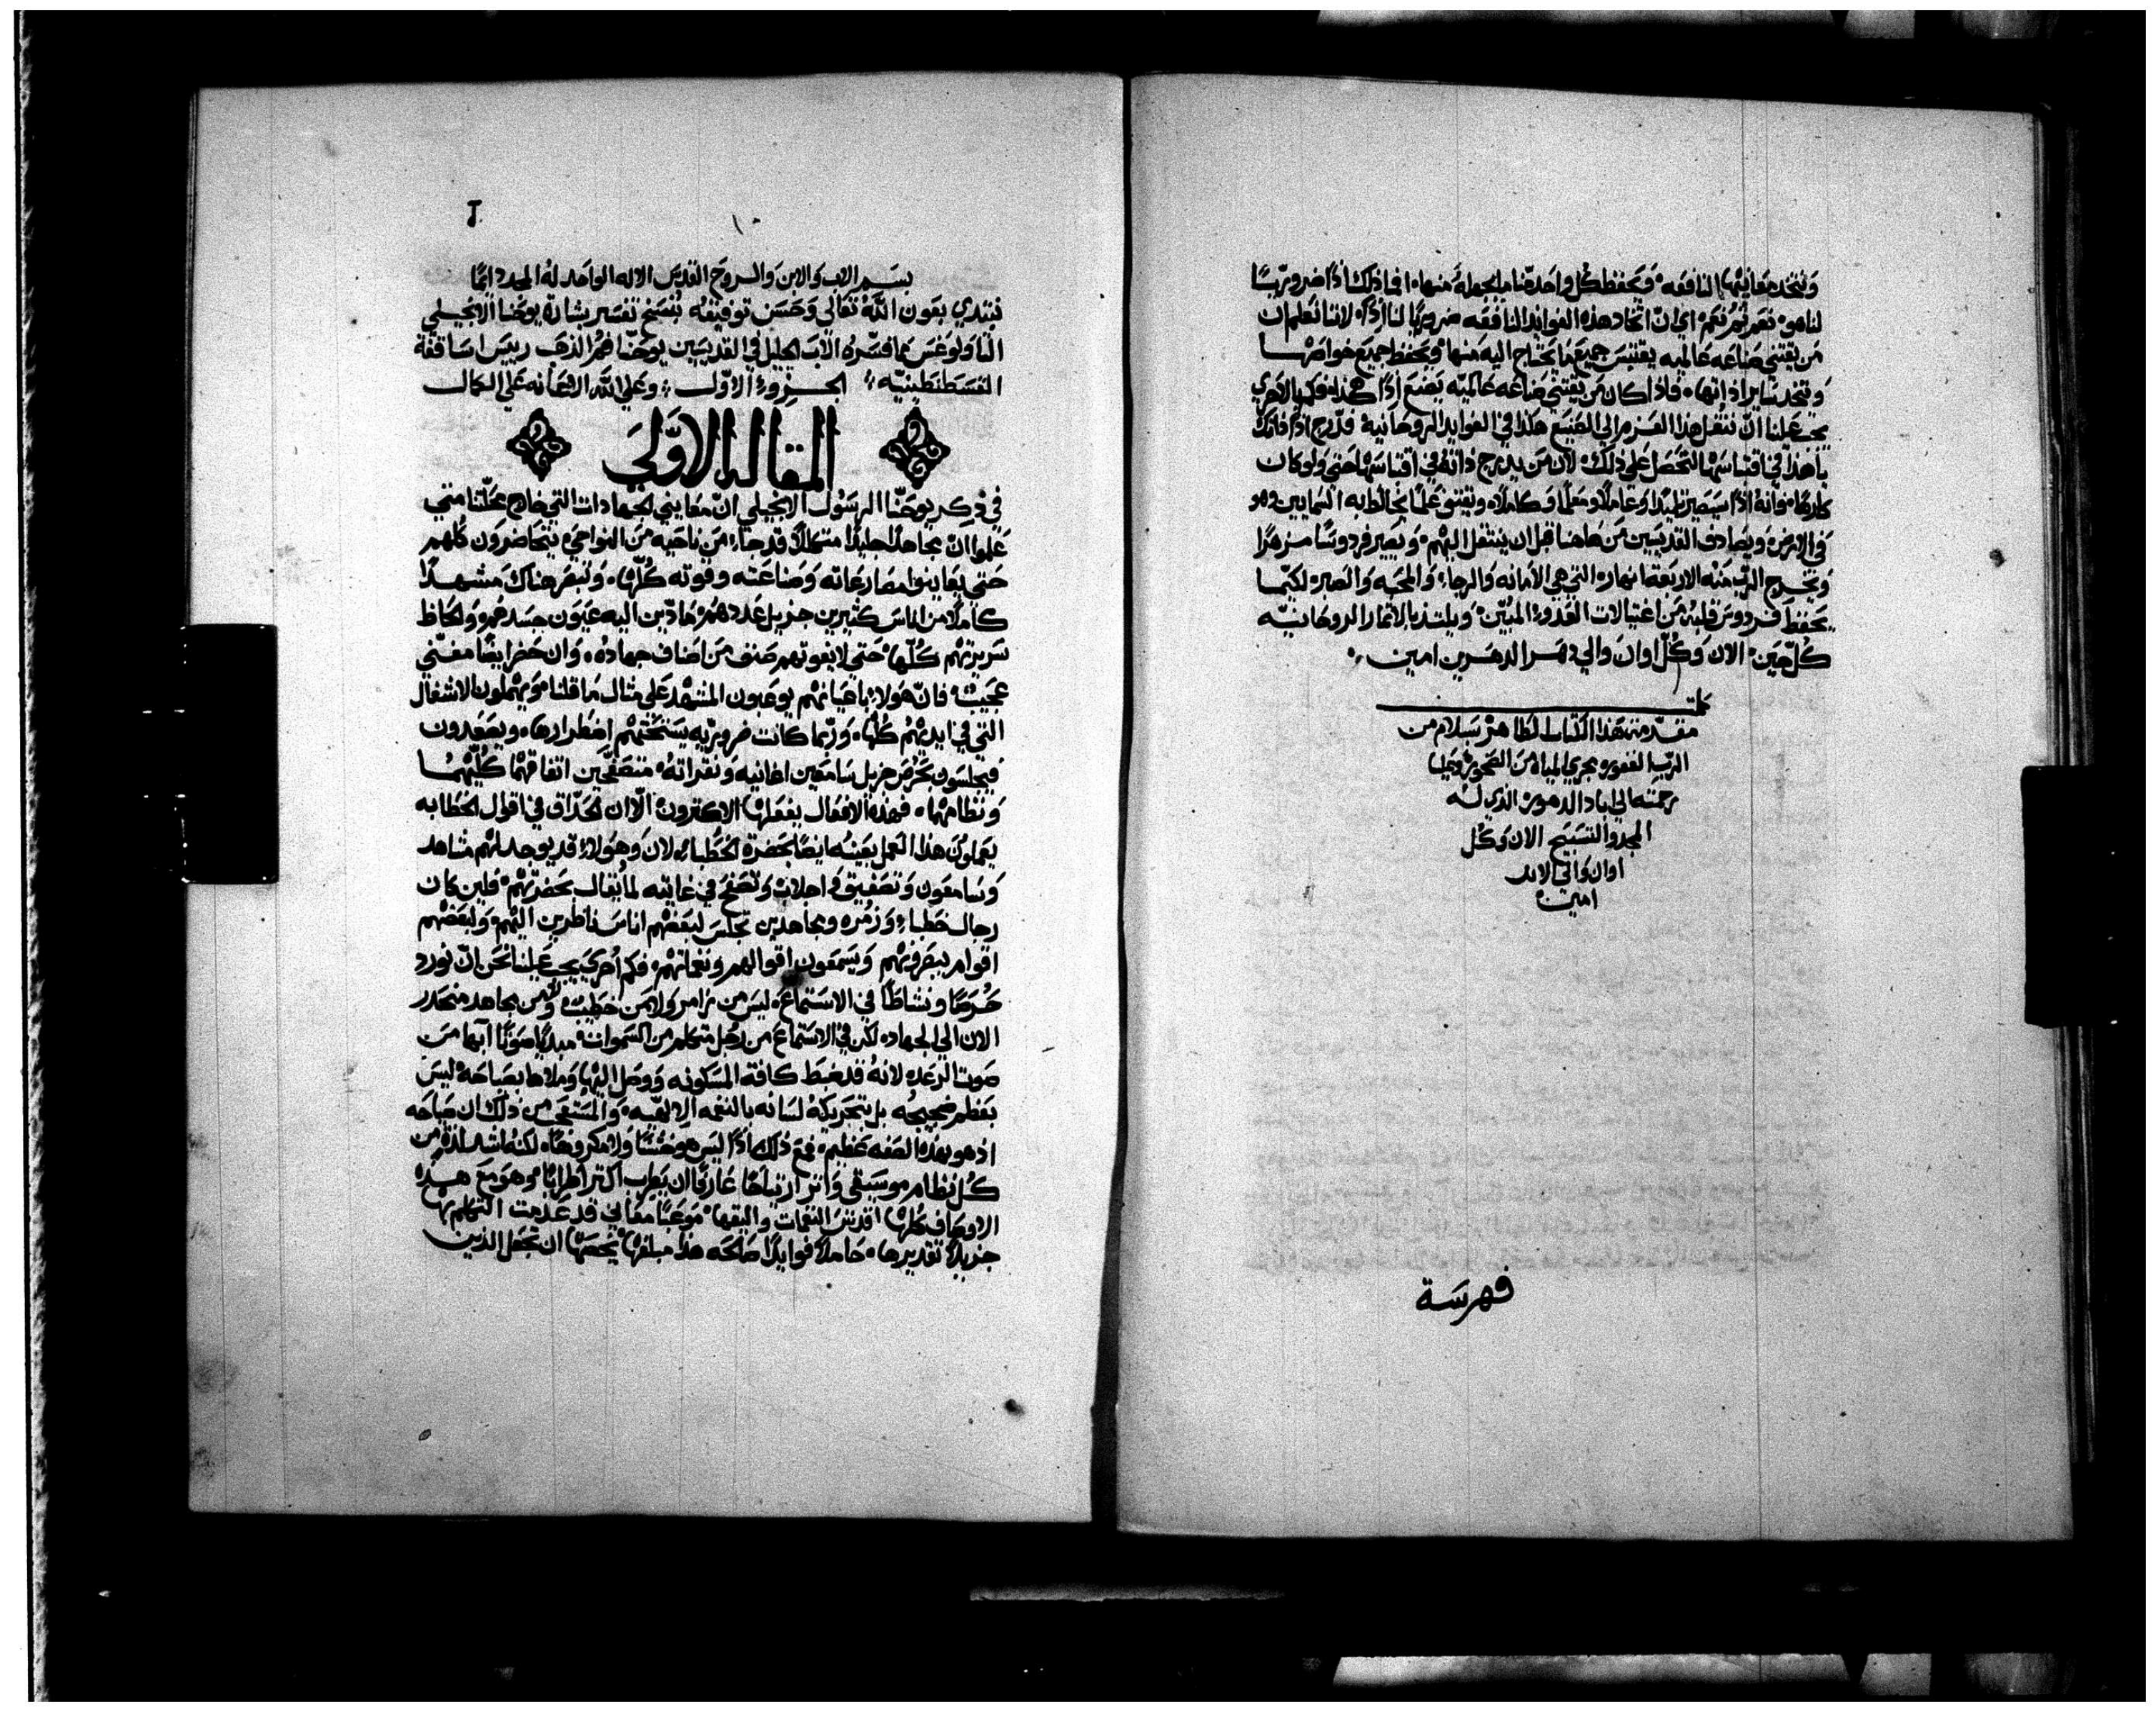 وتتخد معانيها النافعه وتحفظ كل واحد منا ما يجعله منها افما ذلك اذًا ضروريًا
لنا هو نعم نعم نعم اي ان اتخاد هذه الفوايد النافعه ضروريًا لنا اذًا لاننا نعلم ان
من يقتني صناعه عالميه يقتبس جميع ما يحتاج اليه منها ويحفظ جميع خواصها
ويتخد ساير اداتها فاذا كان من يقتني صناعه عالميّه يصنع اذًا هكذا فكم بالاحري
يجب علينا ان هذا الي الصنيع هكذا في الفوايد الروحانية
باهذا في اقتناسها لتحصل على ذلك لان من يدرج ذاته في اقتناسها حتي ولو كان
كارهًا فانه اذًا سيصير تلميدًا وعاملًا ومعلمًا وكاملًا ويقتني علمًا يخالط به السمايين وهو
في الارض ويصادق القديسين من هاهنا قبل ان ينتقل اليهم ويصير فردوسًا مزهرًا
ويخرج الرب منه الاربعة انهار التي هي الامانه والرجاء والمحبه والصبر لكيما
يحفظ فردوس قلبه من اغتيالات العدو المبين ويلتذ بالاثمار الروحانيّه
كل حين الان وكل اوان والي دهر الداهرين امين
كلت
مقدمة هذا الكتاب الطاهر بسلام من
الرب الغفور مجري المياه من الصخور
رحمته الي اباد الدهور الذي له
المجد والتسبيح الان وكل
اوان والى الابد
امين
فهرسة
١
بسم الاب والابن والروح القدس الاله الواحد له المجد دايمًا
نبتدي بعون الله تعالى وحسن توفيقه بنسخ تفسير بشارة يوحنا الانجيلي
الثاولوغس مما فسره الاب الجليل في القديسين يوحنا فم الذهب رييس اساقفة
القسطنطينيّه الجزو الاول وعلى الله الاعانه علي الكمال
المقالة الاوّلي
في ذكر يوحنا الرسول الانجيلي ان معايني الجهادات التي خارج محلتنا متي
علموا ان مجاهدًا جليدًا متكللًا قد جاء من ناحيه من النواحي يتحاضرون كلهم
حتي يعاينوا مصارعاته وصناعته وقوته كلها وتبصر هناك مشهدًا
كاملًا من الناس كثيرين جزيل عددهم مادين اليه عيون جسدهم ولحاظ
سريرتهم كلها حتي لا يفوتهم صنف من اصناف جهاده وان حضر ايضًا مغني
عجيب فان هولاء باعيانهم يوعبون المشهد علي مثال ما قلنا ويهملون الاشغال
التي في ايديهم كلها وربما كانت ضروريه يستحثهم اضطرارها ويصعدون
فيجلسون بحرص جزيل سامعين اغانيه ونقراته متصفحين اتفاقهما كليهما
ونظامهما فهذه الافعال يفعلها الاكثرون الا ان الحذاق في اقوال الخطابه
يعملون هذا العمل بعينه ايضًا بحضرة الخطباء لان وهولاء قد يوجد لهم مشاهد
وسامعون وتصفيق واجلاب وتصفح في غايته لما يقال بحضرتهم فلين كان
رجال خطباء وزمره ومجاهدين تجلس لبعضهم اناس ناظرين اليهم ولبعضهم
اقوام يبصرونهم ويسمعون اقوالهم ونغماتهم فكم احري يجب علينا نحن ان نورد
حرصًا ونشاطًا في الاستماع ليس من زامر ولا من خطيب ولا من مجاهد منحدر
الان الي الجهاد لكن في الاستماع من رجل متكلم من السموات مبديًا صوتًا ابها من
صوت الرعد لانه قد ضبط كافة المسكونه ووصل اليها وملاها بصياحه ليس
بعظم ضجيجه بل بتحريكه لسانه بالنعمه الالهيه والمستعجب من ذلك ان صياحه
اذ هو بهذه الصفه عظيم فمع ذلك اذًا ليس هو خشنًا ولا مكروهًا لكنه اشد لذة من
كل نظام موسيقي واثر ارتياحًا عارفًا ان يطرب اكثر اطرابًا وهو مع هذه
الاوصاف كلها اقدس النغمات وابهاها موعبًا معاني قد عدمت التكلم بها
جزيلًا تقديرها حاملًا فوايدًا صالحه هذا مبلغها يخصها ان تجعل الذين